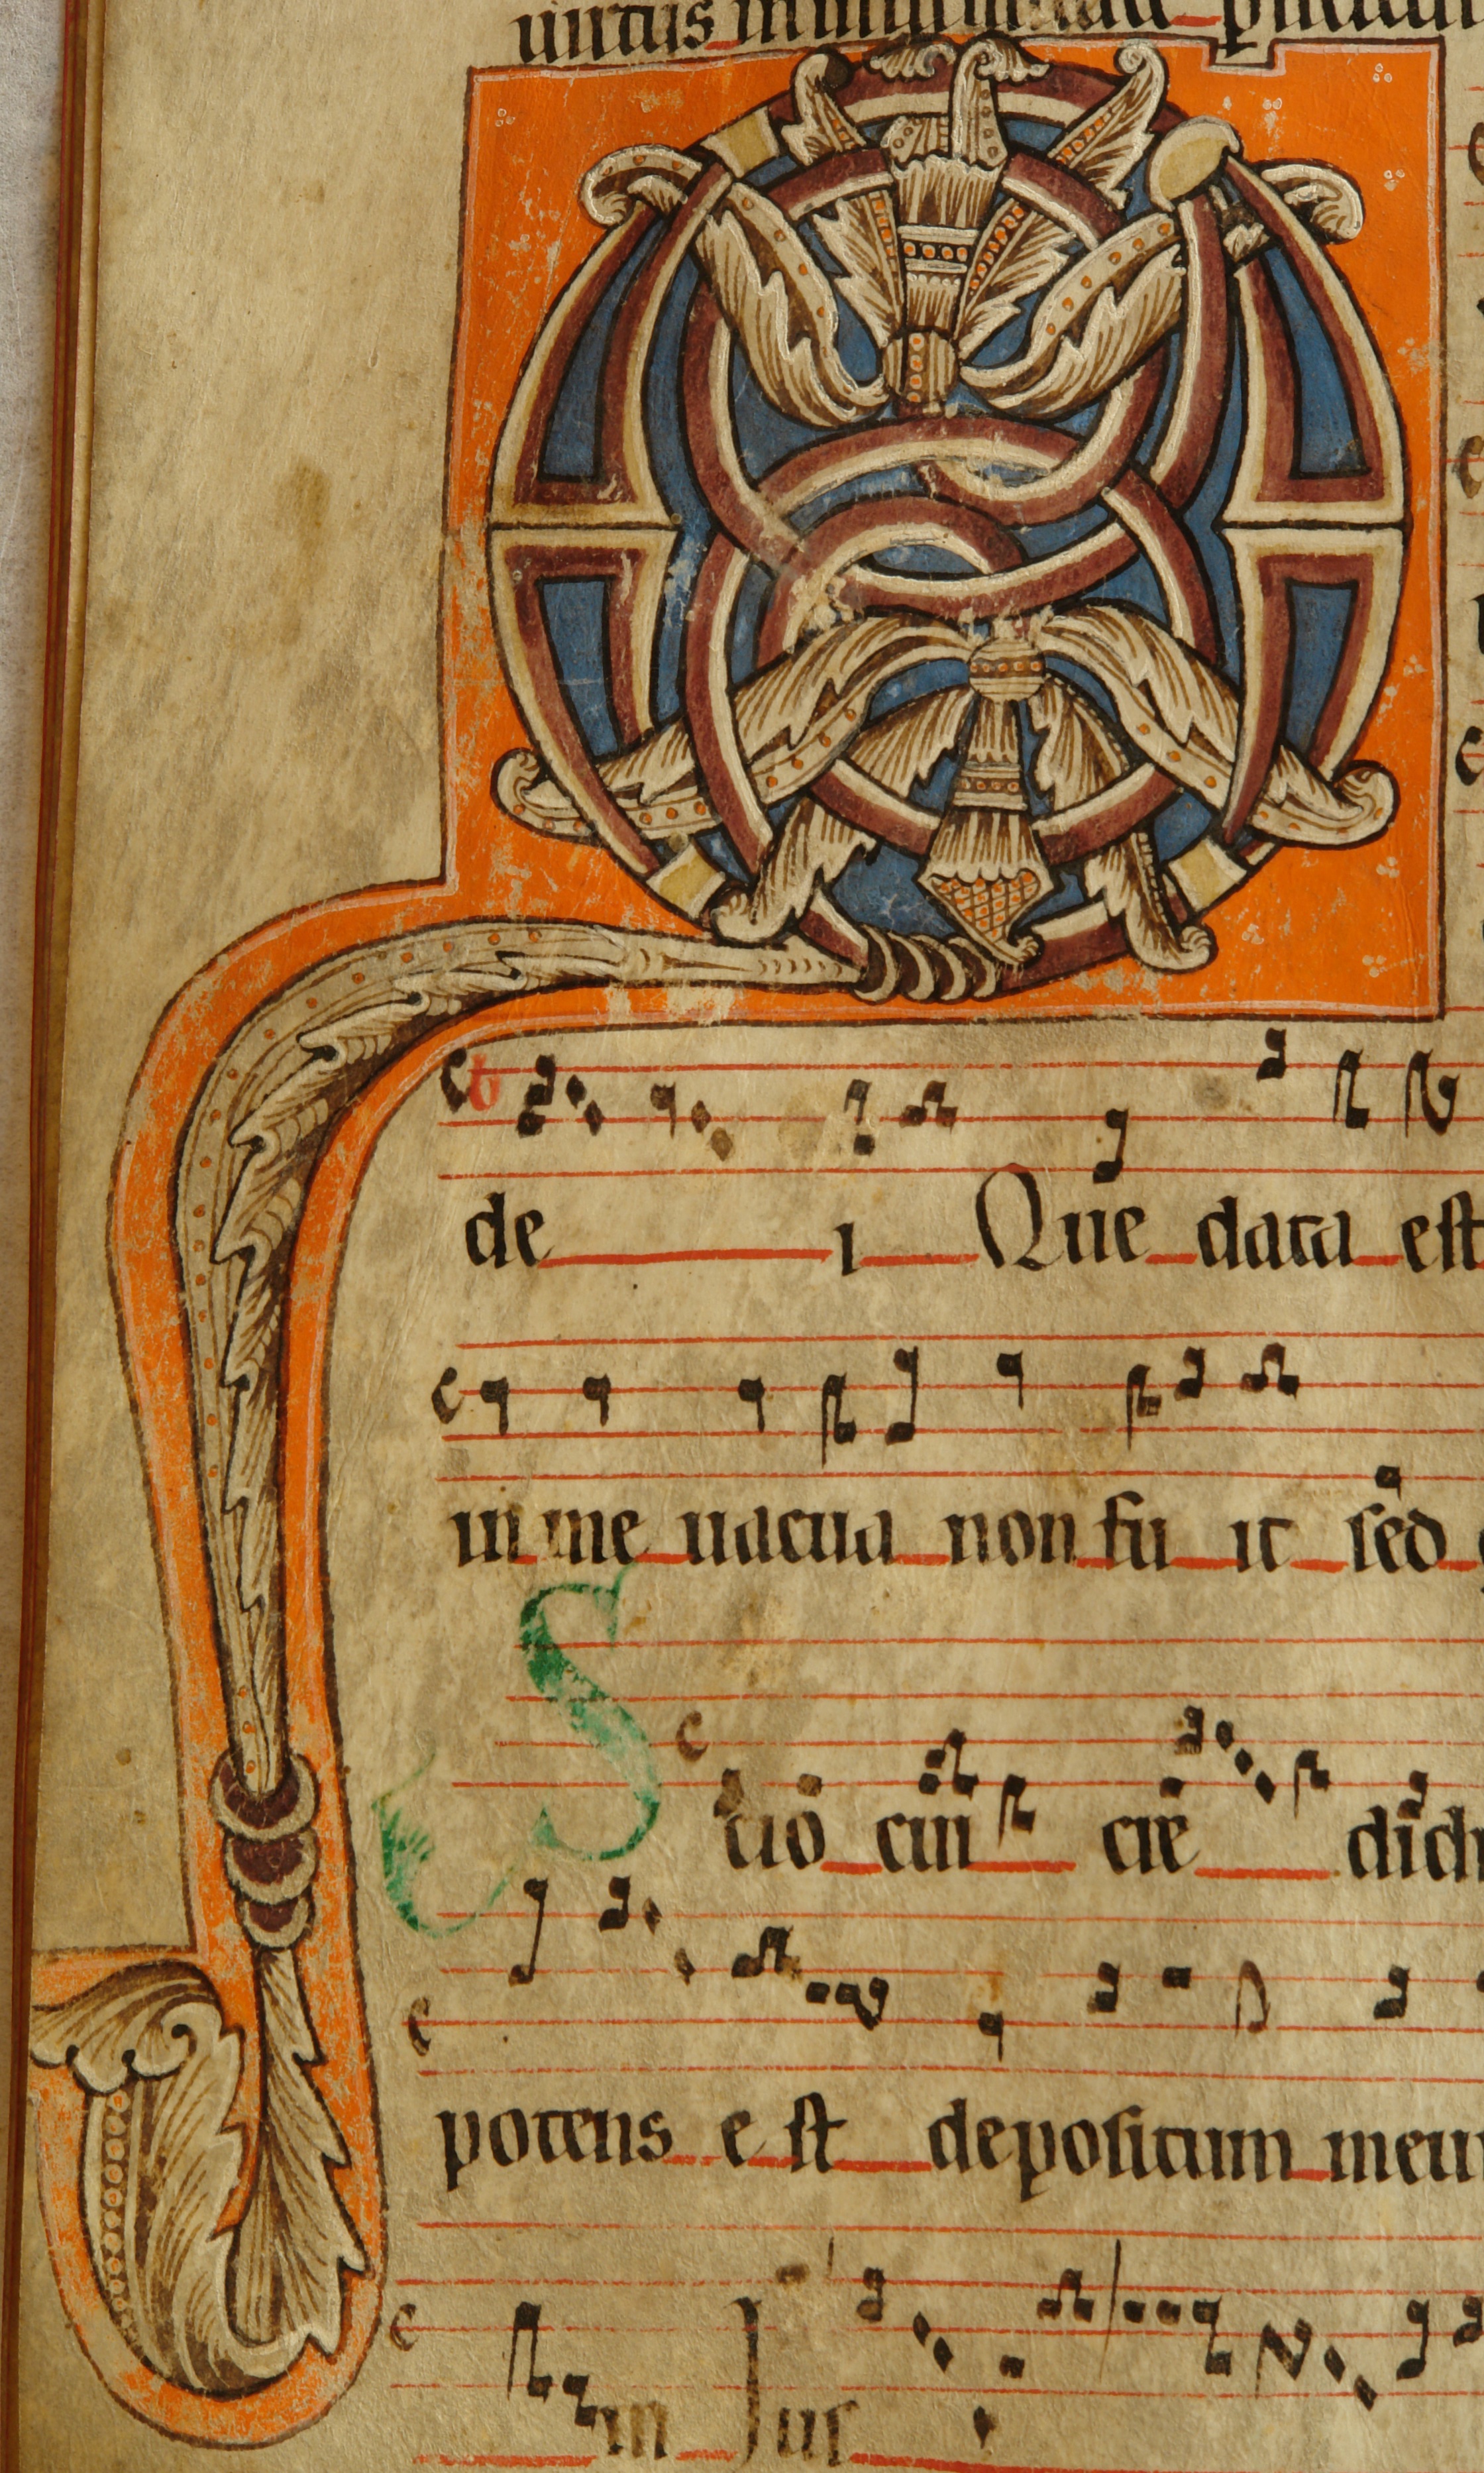 uirtus
Q
de i Que data est
in me uacua non fu it sed
S cio cui cre didi
potens e st depositum meu
in ius